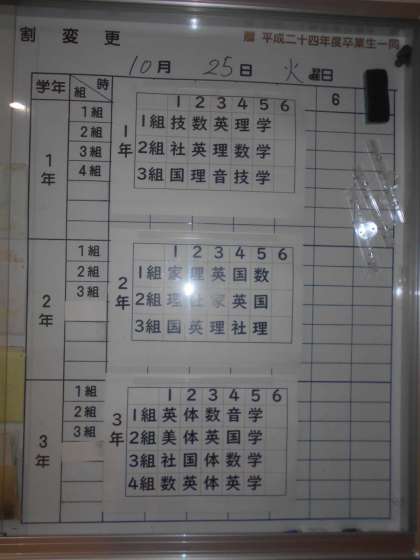 割 変 更
贈 平成二十四年度卒業生一同
10月 25日 火曜日
学年 組 時 6
1年
1組
2組
3組
4組
1年
1 2 3 4 5 6
1組 技 数 英 理 学
2組 社 英 理 数 学
3組 国 理 音 技 学
2年
1組
2組
3組
2年
1 2 3 4 5 6
1組 家 理 英 国 数
2組 理 社 家 英 国
3組 国 英 理 社 理
3年
1組
2組
3組
3年
1 2 3 4 5 6
1組 英 体 数 音 学
2組 美 体 英 国 学
3組 社 国 体 数 学
4組 数 英 体 英 学